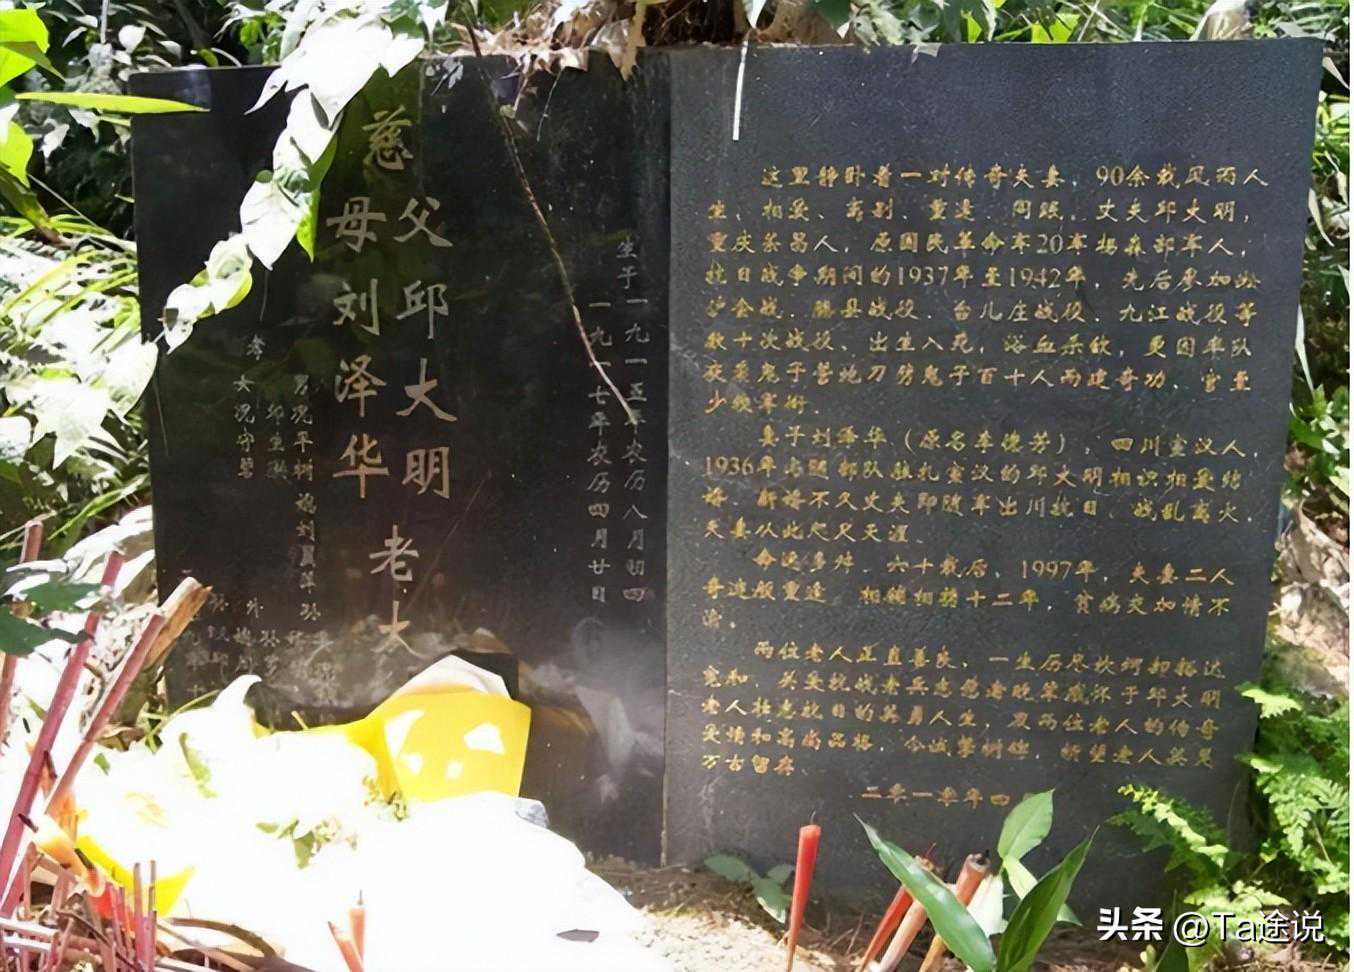 慈父邱大明
母刘泽华
老大
生于一九一五年农历八月初四
一九一七年农历四月廿日
孝
男况平树 媳刘
邱生
女况守碧
这里静卧着一对传奇夫妻，90余载风雨人
生、相爱、离别、重逢、同眠。丈夫邱大明，
重庆荣昌人，原国民革命军20军杨森部军人，
抗日战争期间的1937年至1942年，先后参加淞
沪会战、滕县战役、台儿庄战役、九江战役等
数十次战役、出生入死，浴血杀敌，更因率队
夜袭鬼子营炮刀劈鬼子百十人而建奇功，官至
少校军衔。
妻子刘泽华（原名李德芳），四川宣汉人，
1936年与随部队驻扎宣汉的邱大明相识相爱结
婚，新婚不久丈夫即随军出川抗日，战乱离火，
夫妻从此咫尺天涯。
命运多舛，六十载后，1997年，夫妻二人
奇迹般重逢，相携相搀十二年，贫病交加情不
渝。
两位老人正直善良，一生历尽坎坷却豁达
宽和，关爱抗战老兵志愿者晚辈感怀于邱大明
老人壮志抗日的英勇人生，及两位老人的传奇
爱情和高尚品格，合诚擎树碑，祈望老人英灵
万古留存。
二零一零年四
头条 @Ta途说